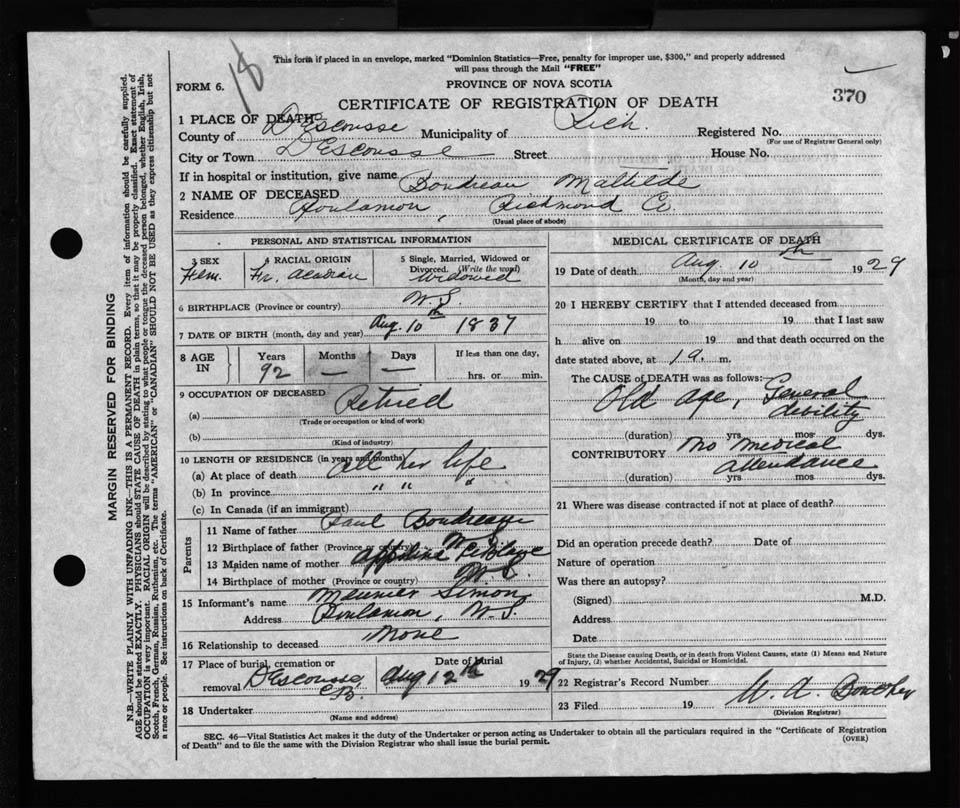 18
This form if placed in an envelope, marked "Dominion Statistics—Free, penalty for improper use, $300," and properly addressed
will pass through the Mail "FREE"
FORM 6.
PROVINCE OF NOVA SCOTIA
370
CERTIFICATE OF REGISTRATION OF DEATH
1 PLACE OF DEATH
County of D'Escousse Municipality of Rich. Registered No.
(For use of Registrar General only)
City or Town D'Escousse Street House No.
If in hospital or institution, give name
2 NAME OF DECEASED Boudreau Mathilde
Residence Poulamon, Richmond Co.
(Usual place of abode)
PERSONAL AND STATISTICAL INFORMATION
3 SEX Fem.
4 RACIAL ORIGIN Fr. Acadian
5 Single, Married, Widowed or
Divorced. (Write the word) Widowed
6 BIRTHPLACE (Province or country) N.S.
7 DATE OF BIRTH (month, day and year) Aug. 10th 1837
8 AGE IN
Years 92 Months — Days —
If less than one day,
hrs. or min.
9 OCCUPATION OF DECEASED Retired
(a)
(Trade or occupation or kind of work)
(b)
(Kind of industry)
10 LENGTH OF RESIDENCE (in years and months)
(a) At place of death all her life
(b) In province " " "
(c) In Canada (if an immigrant)
Parents
11 Name of father Paul Boudreau
12 Birthplace of father (Province or country) N.S.
13 Maiden name of mother
14 Birthplace of mother (Province or country) N.S.
15 Informant's name Meunier Simon
Address Poulamon, N.S
16 Relationship to deceased None
17 Place of burial, cremation or
removal D'Escousse C.B.
Date of burial
Aug 12th 1929
18 Undertaker
(Name and address)
MEDICAL CERTIFICATE OF DEATH
19 Date of death Aug. 10th 1929
(Month, day and year)
20 I HEREBY CERTIFY that I attended deceased from
19 to 19 that I last saw
h alive on 19 and that death occurred on the
date stated above, at 1 a. m.
The CAUSE of DEATH was as follows:—
Old age, General
debility
(duration) yrs mos dys.
CONTRIBUTORY No medical
attendance
(duration) yrs mos dys.
21 Where was disease contracted if not at place of death?
Did an operation precede death? Date of
Nature of operation
Was there an autopsy?
(Signed) M.D.
Address
Date
State the Disease causing Death, or in death from Violent Causes, state (1) Means and Nature
of Injury, (2) whether Accidental, Suicidal or Homicidal.
22 Registrar's Record Number
23 Filed 19
(Division Registrar)
SEC. 46—Vital Statistics Act makes it the duty of the Undertaker or person acting as Undertaker to obtain all the particulars required in the "Certificate of Registration
of Death" and to file the same with the Division Registrar who shall issue the burial permit.
(OVER)
MARGIN RESERVED FOR BINDING
N.B.—WRITE PLAINLY WITH UNFADING INK—THIS IS A PERMANENT RECORD. Every item of information should be carefully supplied.
AGE should be stated EXACTLY. PHYSICIANS should STATE CAUSE OF DEATH in plain terms, so that it may be properly classified. Exact statement of
OCCUPATION is very important. RACIAL ORIGIN will be described by stating to what people or tongue the deceased person belonged, whether English, Irish,
Scotch, French, German, Russian, Ruthenian, etc. The terms "AMERICAN" or "CANADIAN" SHOULD NOT BE USED as they express citizenship but not
a race or people. See instructions on back of Certificate.